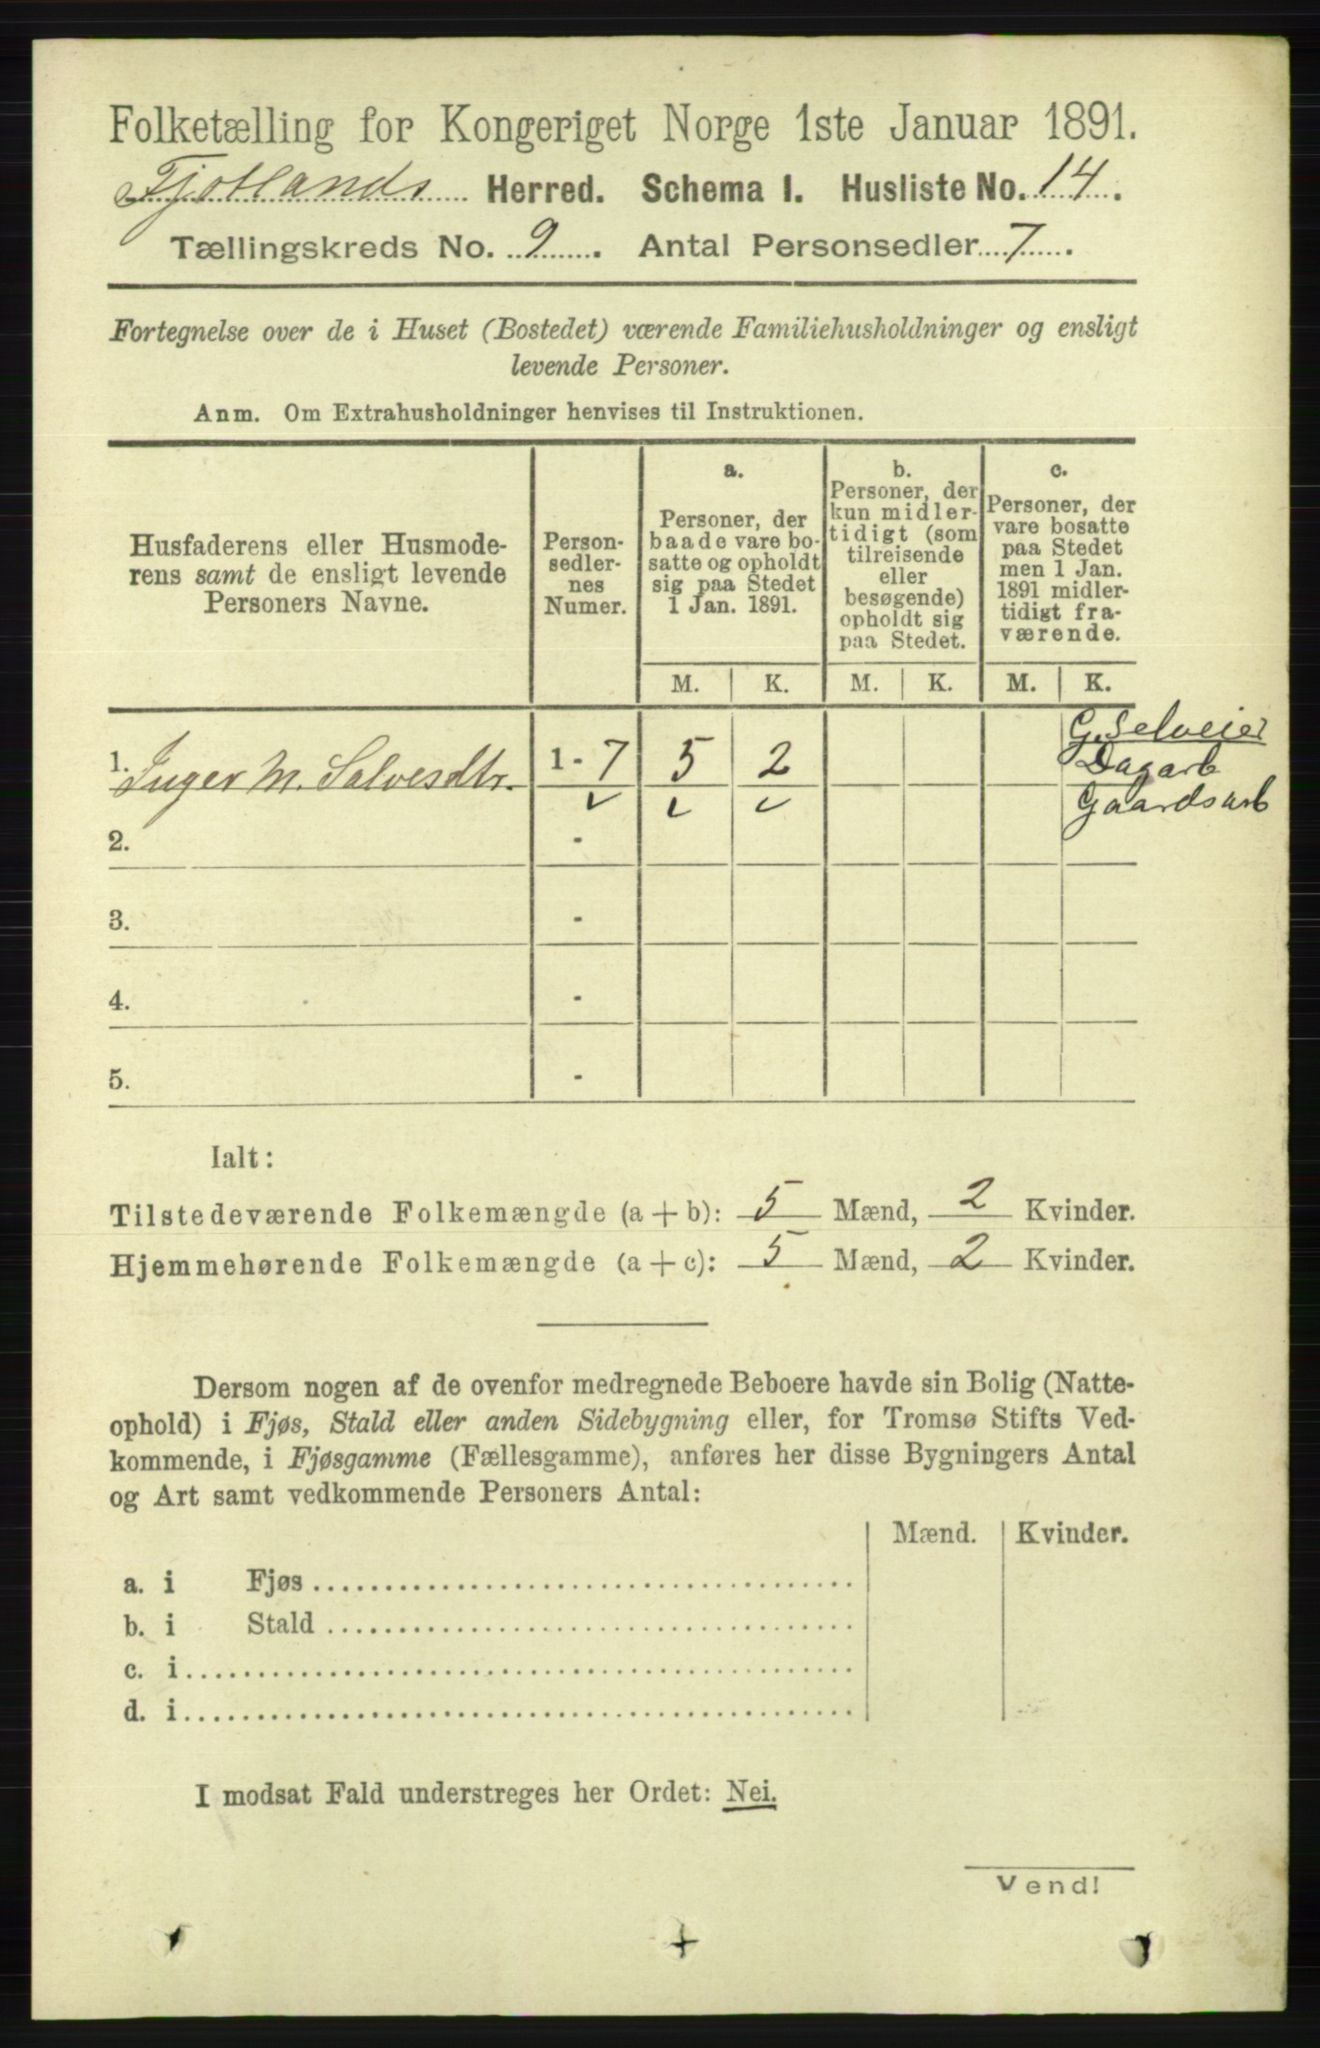 Folketælling for Kongeriget Norge 1ste Januar 1891.
Fjotlands Herred. Schema I. Husliste No. 14.
Tællingskreds No. 9. Antal Personsedler 7.
Fortegnelse over de i Huset (Bostedet) værende Familiehusholdninger og ensligt
levende Personer.
Anm. Om Extrahusholdninger henvises til Instruktionen.
Husfaderens eller Husmode-
rens samt de ensligt levende
Personers Navne.
Person-
sedler-
nes
Numer.
a.
Personer, der
baade vare bo-
satte og opholdt
sig paa Stedet
1 Jan. 1891.
b.
Personer, der
kun midler-
tidigt (som
tilreisende
eller
besøgende)
opholdt sig
paa Stedet.
c.
Personer, der
vare bosatte
paa Stedet
men 1 Jan.
1891 midler-
tidigt fra-
værende.
M. K. M. K. M. K.
G. Selveier
1. Inger M. Salvesdtr. 1 - 7 5 2 Dagarb
Gaardsarb
2. -
3. -
4. -
5. -
Ialt:
Tilstedeværende Folkemængde (a + b): 5 Mænd, 2 Kvinder.
Hjemmehørende Folkemængde (a + c): 5 Mænd, 2 Kvinder.
Dersom nogen af de ovenfor medregnede Beboere havde sin Bolig (Natte-
ophold) i Fjøs, Stald eller anden Sidebygning eller, for Tromsø Stifts Ved-
kommende, i Fjøsgamme (Fællesgamme), anføres her disse Bygningers Antal
og Art samt vedkommende Personers Antal:
Mænd. Kvinder.
a. i Fjøs
b. i Stald
c. i
d. i
I modsat Fald understreges her Ordet: Nei.
Vend!